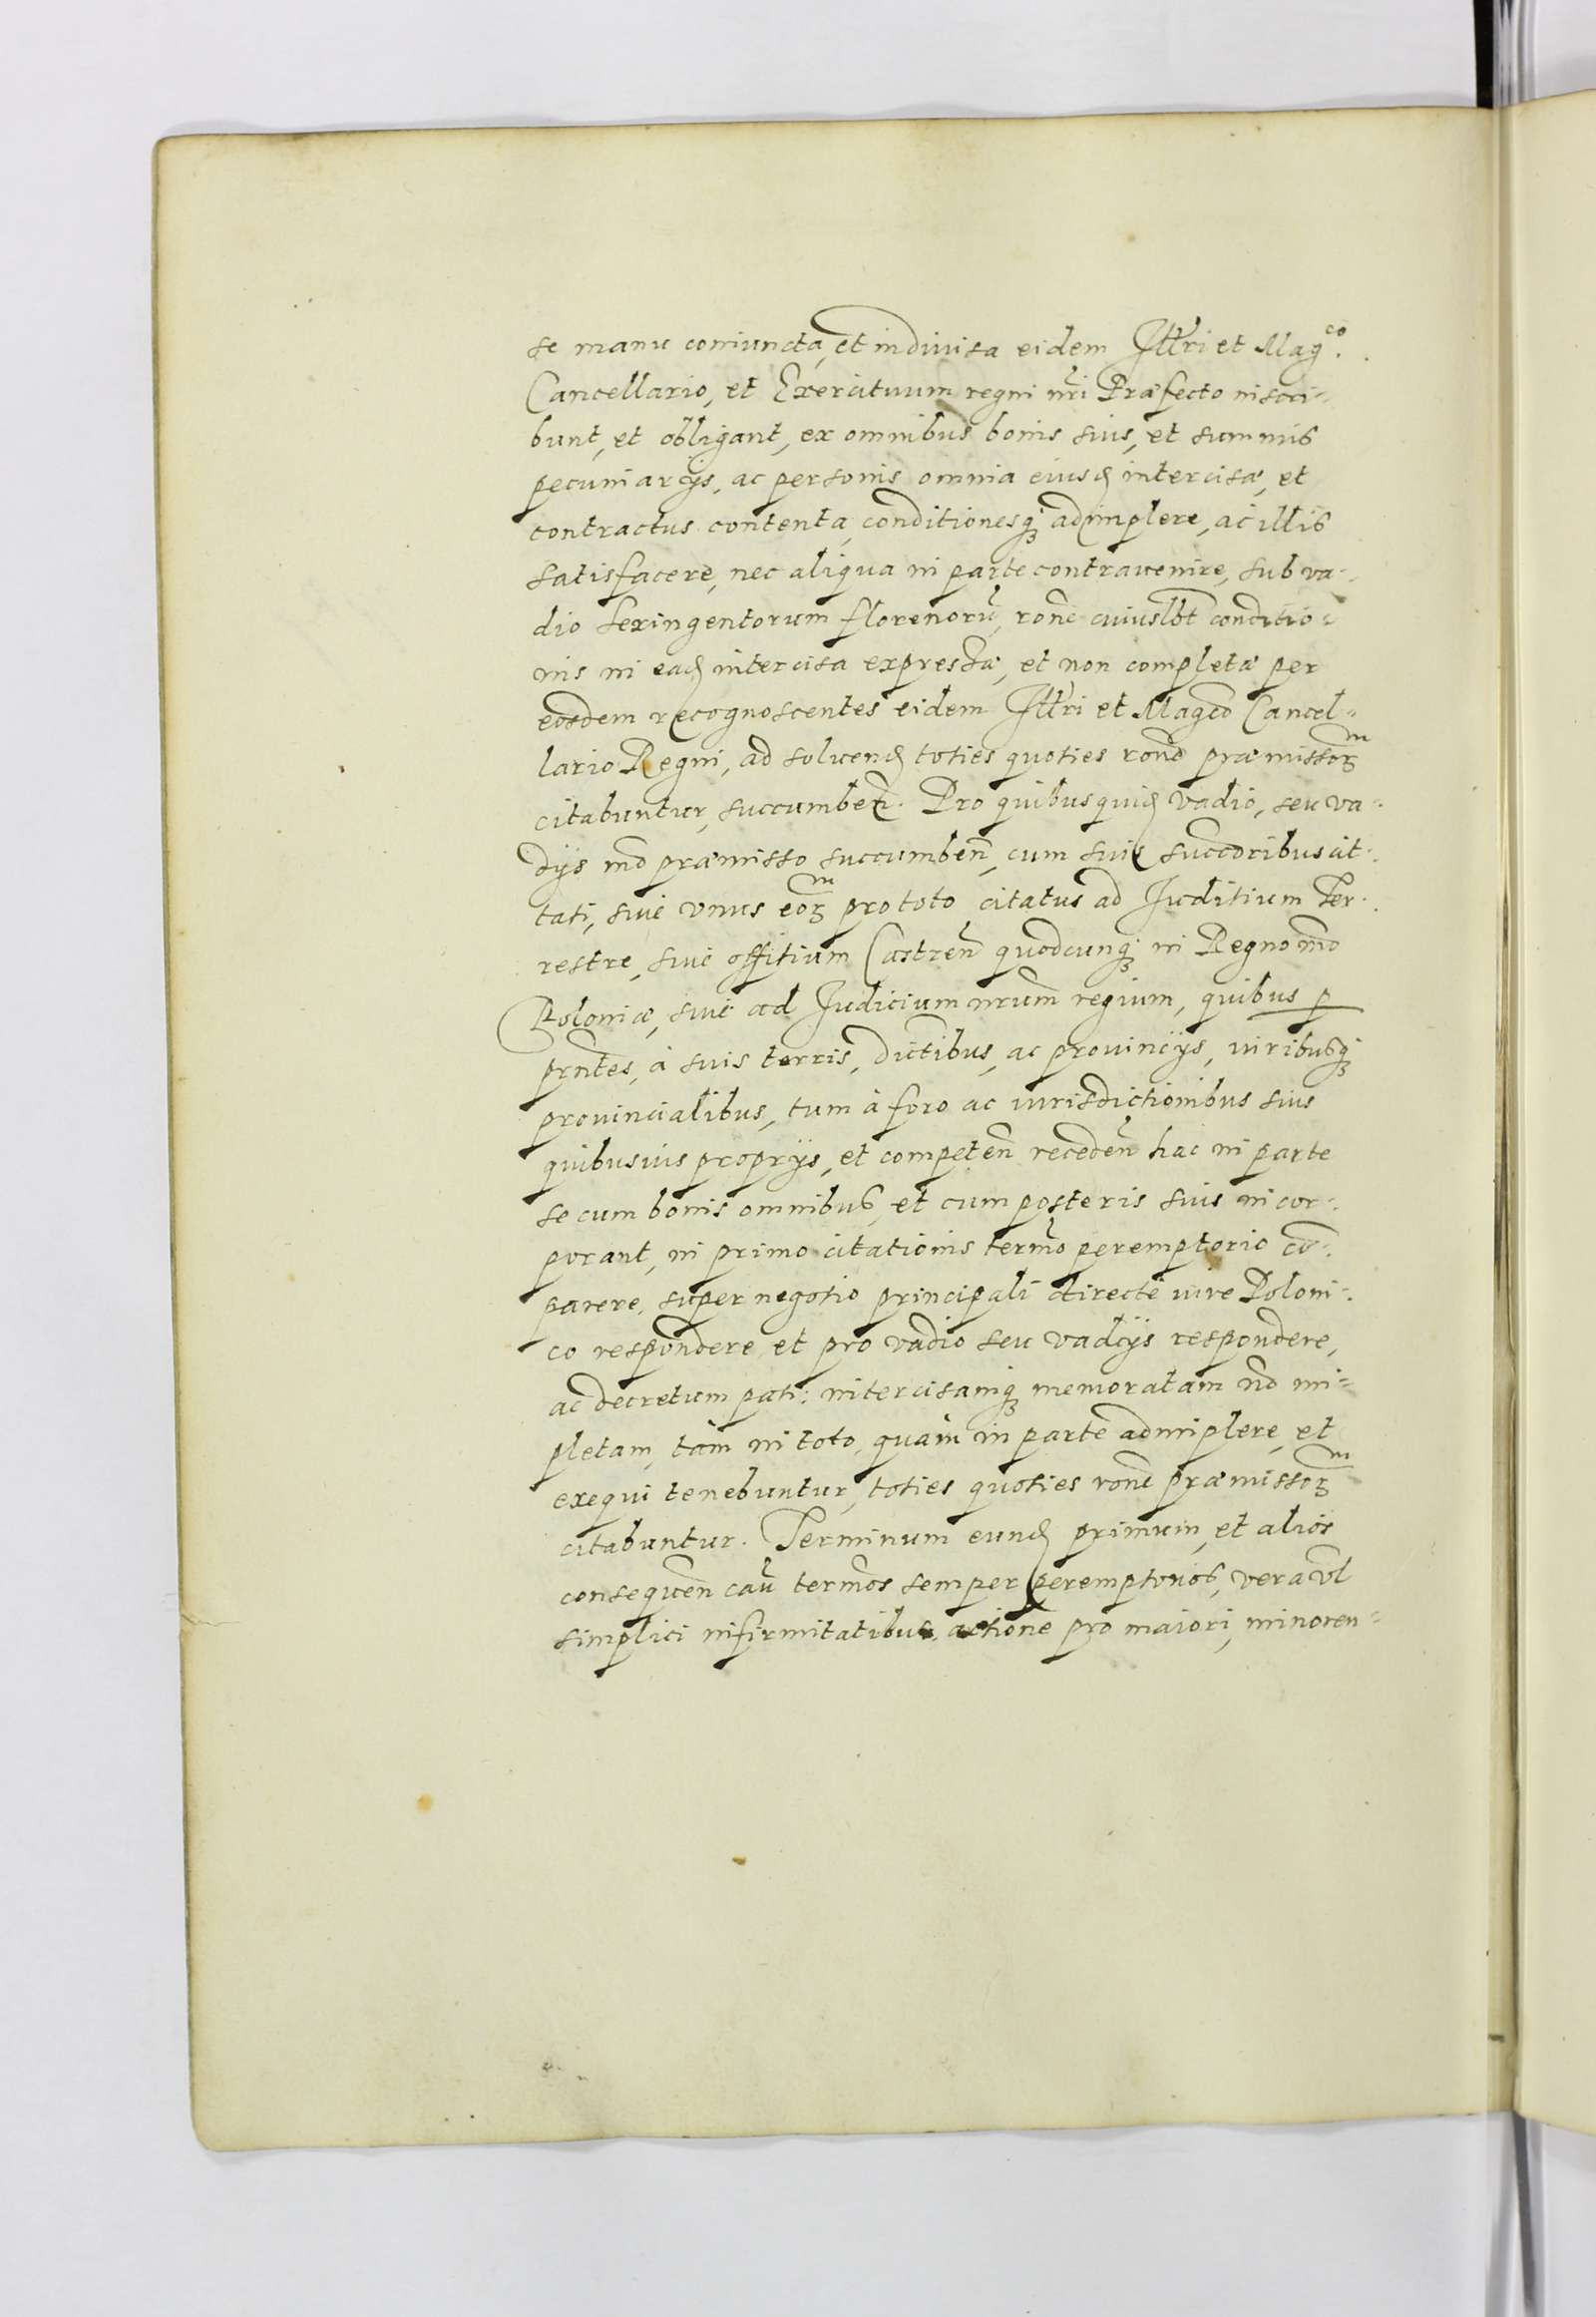 se manu coniuncta, et indiuisa eidem Illri et Mag.co
Cancellario, et Exercituum regni nri Præfecto inscri-
bunt, et obligant, ex omnibus bonis suis, et summis
pecuniarijs, ac personis omnia eiusd intercisæ, et
contractus contenta, conditionesq; adimplere, ac illis
satisfacere, nec aliqua in parte contrauenire, sub va-
dio sexingentorum florenorũ, rone cuiuslbt conditio-
nis in ead intercisa expressæ, et non completæ per
eosdem recognoscentes eidem Illri et Magco Cancel-
lario Regni, ad soluend toties quoties rone præmissorum
citabuntur, succumben. Pro quibusquid vadio, seu va-
dijs mo præmisso succumben, cum suis succoribus cit-
tati, siue vnus eorum pro toto citatus ad Iuditium Ter-
restre, siue offitium Castren quodcunq; in Regno nro
Poloniæ, siue ad Judicium nrum regium, quibus p
prntes, à suis terris, dictibus, ac prouincijs, iuribusq;
prouincialibus, tum à foro ac iurisdictionibus suis
quibusuis proprijs, et competen receden hac in parte
se cum bonis omnibus, et cum posteris suis incor-
porant, in primo citationis termo peremptorio co-
parere, super negotio principali directè iure Poloni-
co respondere et pro vadio seu vadijs respondere,
ac decretum pati: intercisamq; memoratam no im-
pletam, tàm in toto, quàm in parte adimplere, et
exequi tenebuntur, toties quoties rone præmissorum
citabuntur. Terminum eund primum, et alios
consequen cau termos semper peremptorios, vera vl
simplici infirmitatibus, actione pro maiori, minoreu-